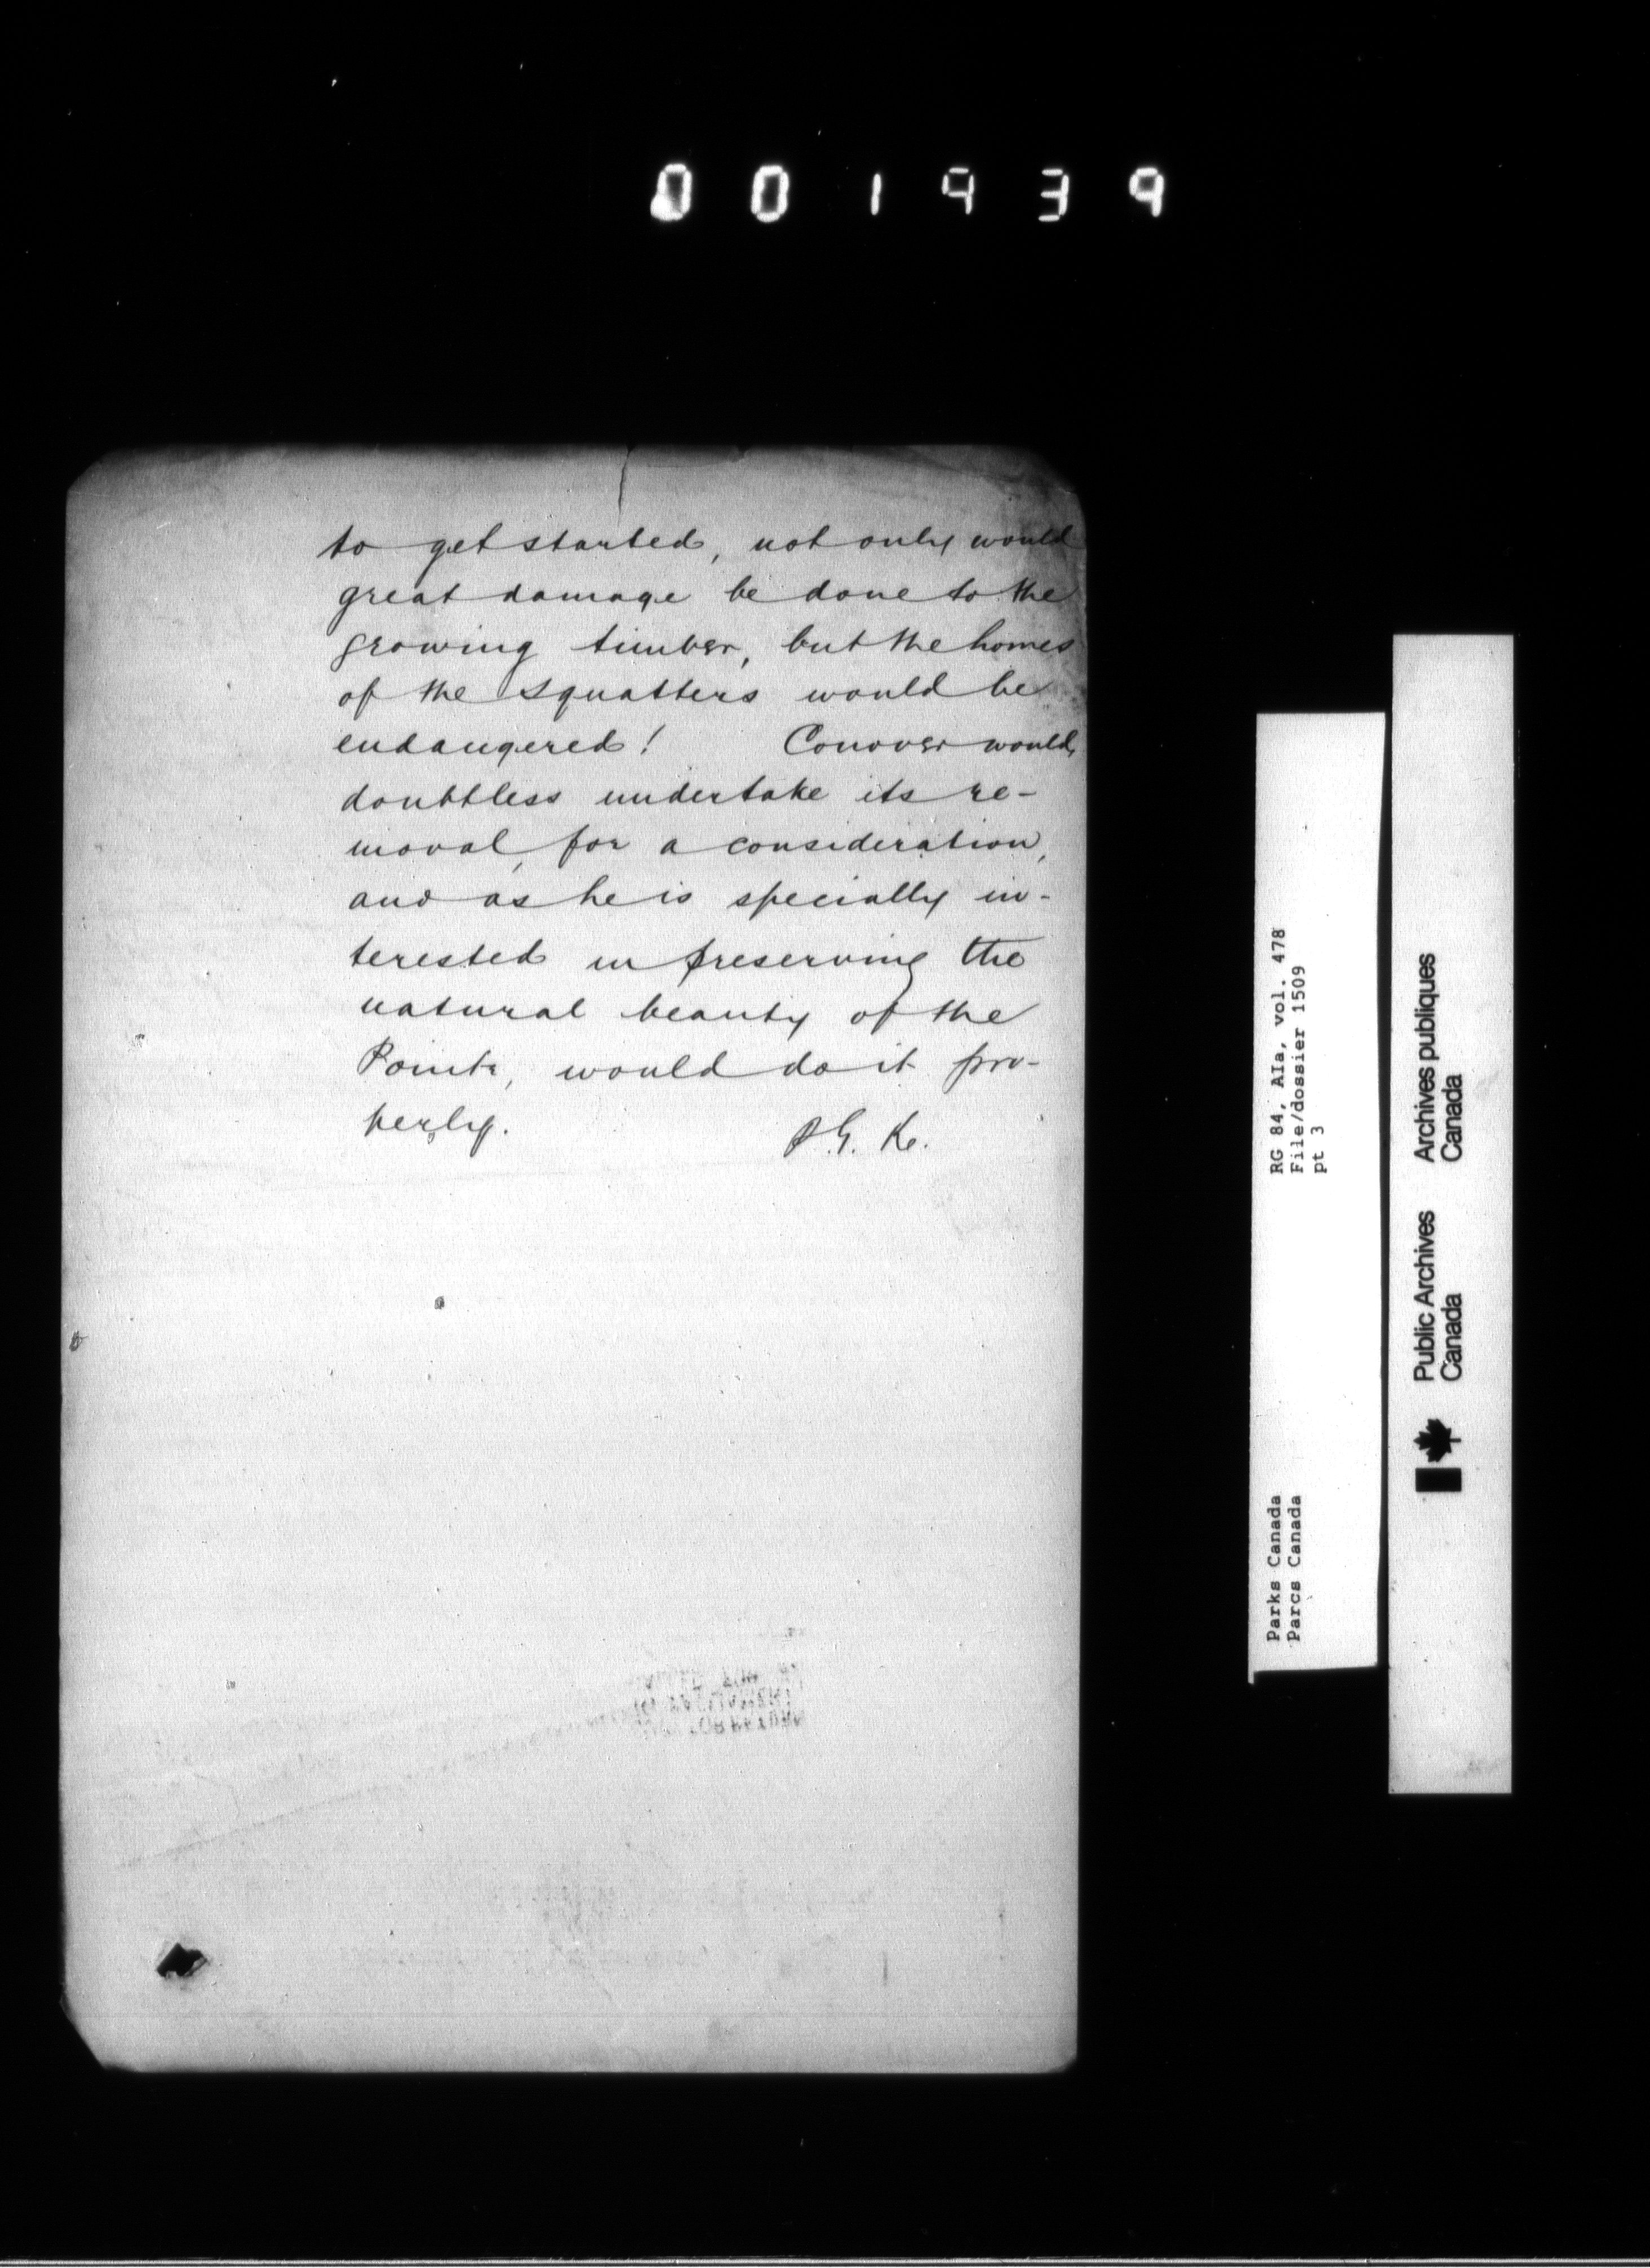 001939
to get started, not only would
great damage be done to the
growing timber, but the homes
of the squatters would be
endangered! Conover would
doubtless undertake its re-
moval, for a consideration,
and as he is specially in-
terested in preserving the
natural beauty of the
Point, would do it pro-
perly. P.G. K.
RG 84, AIa, vol. 478
File/dossier 1509
pt 3
Parks Canada
Parcs Canada
Public Archives
Canada
Archives publiques
Canada